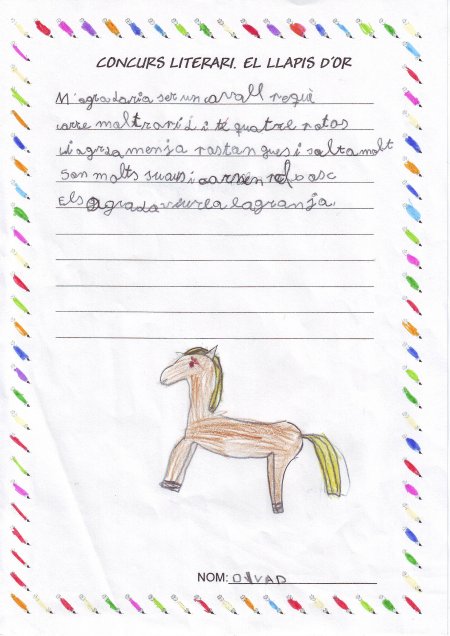 CONCURS LITERARI. EL LLAPIS D'OR
M'agradaria ser un cavall reguè
corre molt rarid i té quatre potos
li agrda menja rastangues i salta molt
Son molts suaus i al bosc
Els agrada viure a la granja.
NOM: